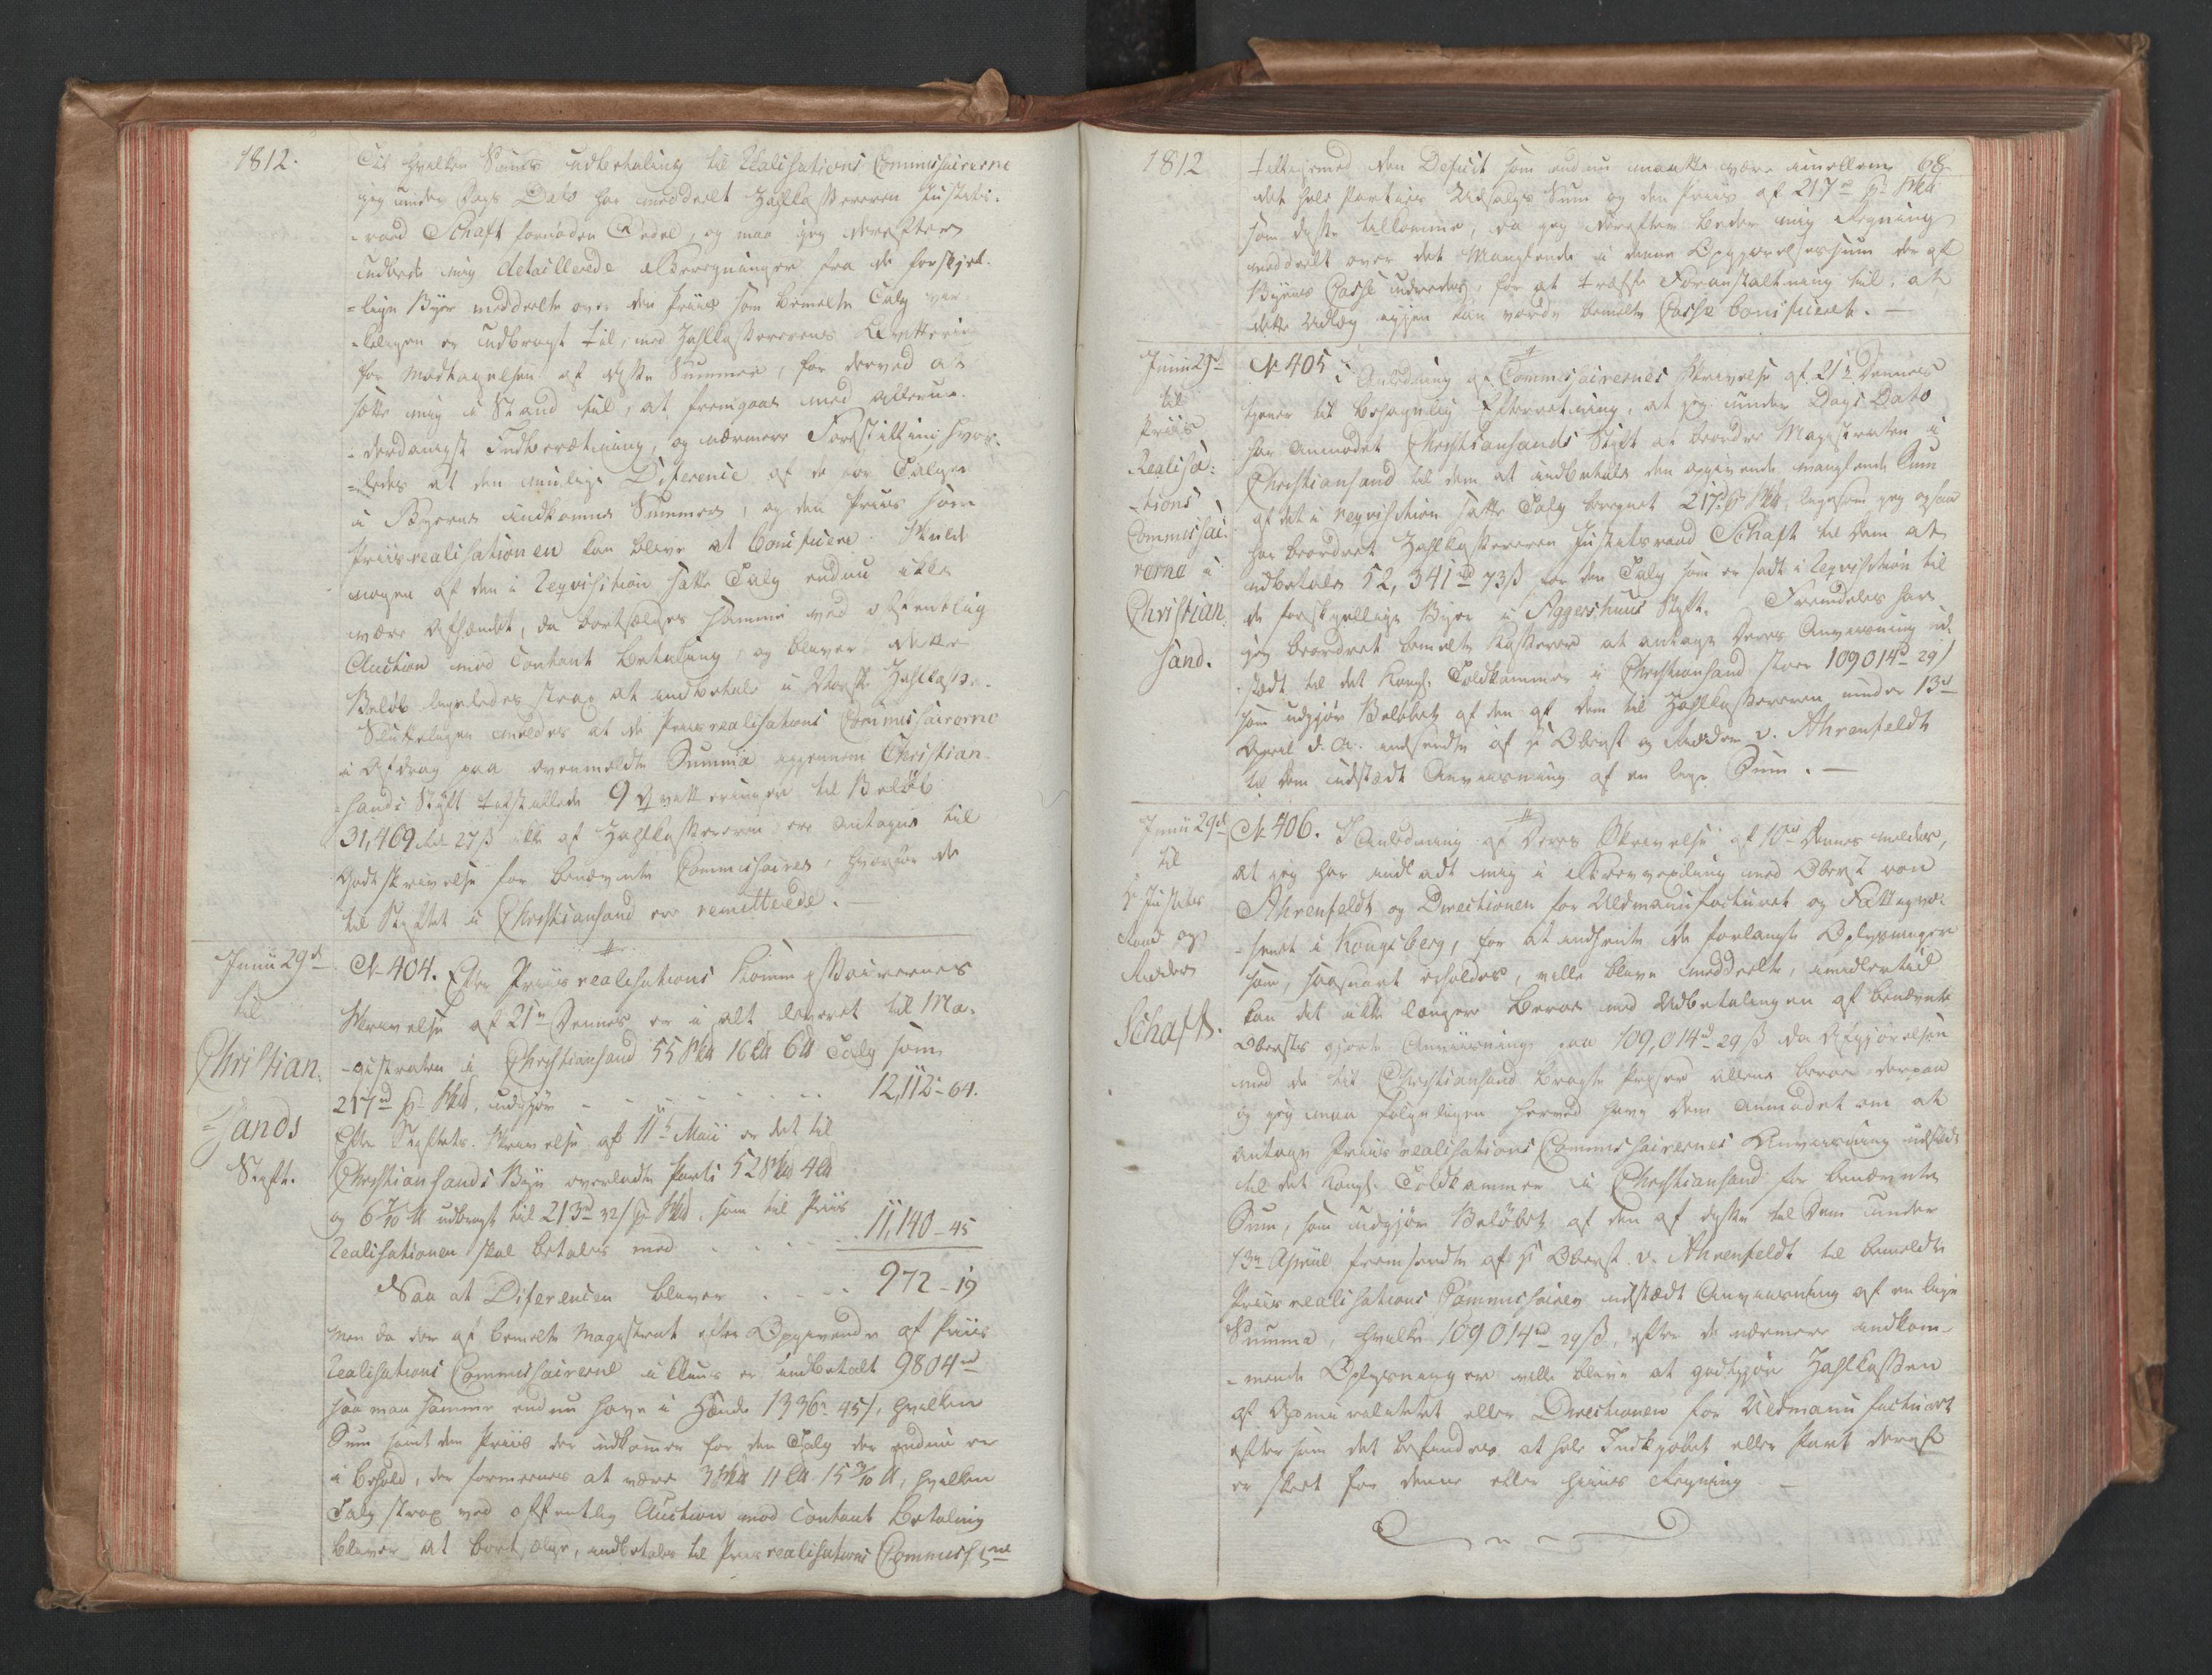 1812.
Til hvilken Sums udbetaling til Realisations Commissairerne
jeg under Dags Dato har meddeelt Zahlkassereren Justits-
raad Schaft fornøden Ordre, og maa jeg derefter
udbede mig detaillerede Beregninger fra de forskjel-
=lige Byer meddeelte over den Priis som bemelte Talg vir-
=keligen er udbragt til, med Zahlkassererens Qvitterin
for Modtagelsen af disse Summer, for derved at
sætte mig i Stand til, at fremgaae med allerun-
=derdanigst Indberætning, og nærmere Forestilling hvor-
=ledes at den mulige Diference af de for Talgen
i Byerne indkomne Summer, og den Priis som
Priisrealisationen kan blive at bonificere. Skulde
nogen af den i Reqvisition satte Talg endnu ikke
være Afhændet, da bortsælges samme ved offentlig
Auction mod contant Betaling, og bliver dette
Beløb ligeledes strax at indbetale i Norske Zahlkasse.
Sluttelgen meldes at de Priisrealisations Commissairerne
i Afdrag paa ovenmeldte Summa igjennem Christian-
=sands Stift tilstillede 9 Qvitteringer til Beløb
31,469 rd 27 ß ikke af Zahlkassereren ere antagne til
Godtskrivelse for benævnte Commissairer, hvorfor de
til Stiftet i Christiansand ere remitterede.
Junii 29d
til
Christian-
=sands
Stift.
No 404. Efter Priisrealisations Kommissairernes
Skrivelse af 21de Dennes er i alt leveret til Ma-
=gistraten i Christiansand 55 Sk℔ 16 L℔ 6 ℔ Talg som
217 rd pr Sk℔, udgjør - - - - 12,112 - 64.
Efter Stiftets Skrivelse af 11te Maii er det til
Christiansands Bye overladte Parti 52 Sk℔ 4 L℔
og 6 7/10 ℔ udbragt til 213 rd 32 ß pr Sk℔, som til Priis
Realisationen skal betales med . . . 11,140 - 45
Saa at Diferencen bliver . . . 972 - 19
Men da der af bemelte Magistrat efter Opgivende af Priis
Realisations Commissairerne ikkuns er indbetalt 9804 rd
saa maa samme endnu have i Hænde 1336 rd 45 ß, hvilken
Sum samt den Priis der udkommer for den Talg der endnu er
i Behold, der formeenes at være 3 Sk℔ 11 L℔ 15 3/10 ℔, hvilken
Talg strax ved offentlig Auction mod contant Betaling
bliver at bortsælge, indbetales til Priisrealisations Commissrne
1812
68
tilligemed den Deficit som endnu maatte være imellem
det hele Parties Udsalgs Sum og den Priis af 217 rd pr Sk℔
som disse tilkomme, da jeg derefter beder mig Regning
meddeelt over det Manglende i denne Opgjørelsessum der af
Byens Casse udredes, for at træffe Foranstaltning til, at
dette Udlæg igjen kan vorde bemelte Casse bonificeret. —
Junii 29d
til
Priis
Realisa-
=tions
Commissai-
rerne i
Christian-
sand.
No 405. I Anledning af Commissairernes Skrivelse af 21de Dennes
tjener til behagelig Efterretning, at jeg under Dags Dato
har anmodet Christiansands Stift at beordre Magistraten i
Christiansand til dem at indbetale den opgivende manglende Sum
af det i reqvisition satte Talg beregnet 217 rd pr Sk℔, ligesom jeg ogsaa
har beordret Zahlkassereren Justitsraad Schaft til Dem at
udbetale 52,341 rd 73 ß for den Talg som er sadt i Reqvisition til
de forskjellige Byer i Aggershuus Stift. Fremdeles har
jeg beordret bemelte Kasserer at antage Deres Anvisning ud-
stædt til det Kongl. Toldkammer i Christiansand stor 109014 rd 29 ß
som udgjør Beløbet af den af dem til Zahlkassereren under 13d
April d. A. indsendte af Hr Oberst og Ridder v. Ahrenfeldt
til Dem udstædt Anviisning af en lige Sum. —
Junii 29d
til
Hr Justits
Raad og
Ridder
Schaft.
No 406. I Anledning af Deres Skrivelse af 10de Dennes meldes,
at jeg har indladt mig i Brevvexling med Oberst von
Ahrenfeldt og Directionen for Uldmanufacturet og Fattigvæ-
=senet i Kongsberg, for at indhente de forlangte Oplysninger
som, saasnart erholdes, ville blive meddeelte, imidlertid
kan det ikke længere beroe med Udbetalingen af benævnte
Obersts gjorte Anviisning paa 109,014 rd 29 ß da Afgjørelsen
med de til Christiansand bragte Priser allene beroe derpaa
og jeg maa følgeligen herved have Dem anmodet om at
antage Priisrealisations Commissairernes Anviisning udstædt
til det Kongl. Toldkammer i Christiansand for benævnte
Sum, som udgjør Beløbet af den af disse til Dem under
13de April fremsendte af Hr Oberst v. Ahrenfeldt til bemeldte
Priisrealisations Commissairer udstædt Anviisning af en lige
Summa, hvilke 109014 rd 29 ß, efter de nærmere indkom-
=mende Oplysninger ville blive at godtgjøre Zahlkassen
af Admiralitetet eller Directionen for Uldmanufacturet
eftersom det befindes at hele Indkjøbet eller Part deraf
er skeet for denne eller hiins Regning —